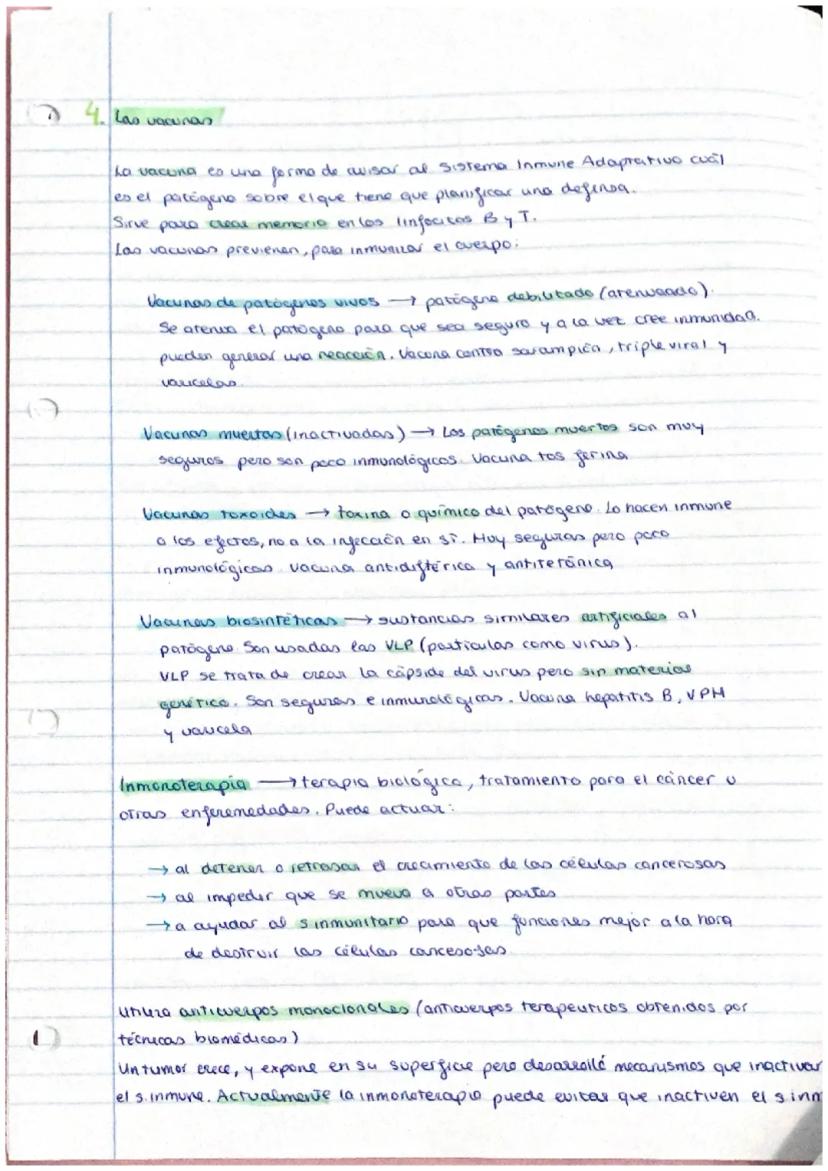 4. Las vacunas
La vacuna es una forma de avisar al Sistema Inmune Adaptativo cuál
es el patógeno sobre el que tiene que planificar una defensa.
Sirve para crear memoria en los linfocitos B y T.
Las vacunas previenen, para inmunizar el cuerpo:
Vacunas de patógenos vivos → patógeno debilitado (atenuado).
Se atenua el patógeno para que sea seguro y a la vez cree inmunidad.
pueden generar una reacción. Vacuna contra sarampión, triple viral y
varicelas.
Vacunas muertas (inactivadas) → Los patógenos muertos son muy
seguros pero son poco inmunológicos. Vacuna tos ferina
Vacunas toxoides → toxina o químico del patógeno. Lo hacen inmune
a los efectos, no a la infección en sí. Muy seguras pero poco
inmunológicas. vacuna antidiftérica y antitetánica
Vacunas biosintéticas → sustancias similares artificiales al
patógeno. Son usadas las VLP (partículas como virus).
VLP se trata de crear la cápside del virus pero sin material
genético. Son seguras e inmunológicas. Vacuna hepatitis B, VPH
y varicela
Inmonoterapia → terapia biológica, tratamiento para el cáncer u
otras enferemedades. Puede actuar:
→ al detener o retrasar el crecimiento de las células cancerosas
→ al impedir que se mueva a otras partes
→ a ayudar al s inmunitario para que funciones mejor a la hora
de destruir las células cancerosas
Utiliza anticuerpos monoclonales (anticuerpos terapeuticos obtenidos por
técnicas biomédicas)
Un tumor crece, y expone en su superficie pero desarrolló mecanismos que inactivar
el s. inmune. Actualmente la inmonoterapia puede evitar que inactiven el s inm